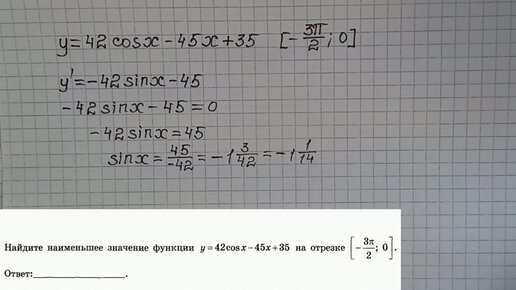 y=42cosx-45x+35 [-3π/2; 0]
y'=-42sinx-45
-42sinx-45=0
-42sinx=45
sinx=45/-42=-1 3/42=-1 1/14
Найдите наименьшее значение функции y=42cosx-45x+35 на отрезке [-3π/2; 0].
Ответ:____________________.